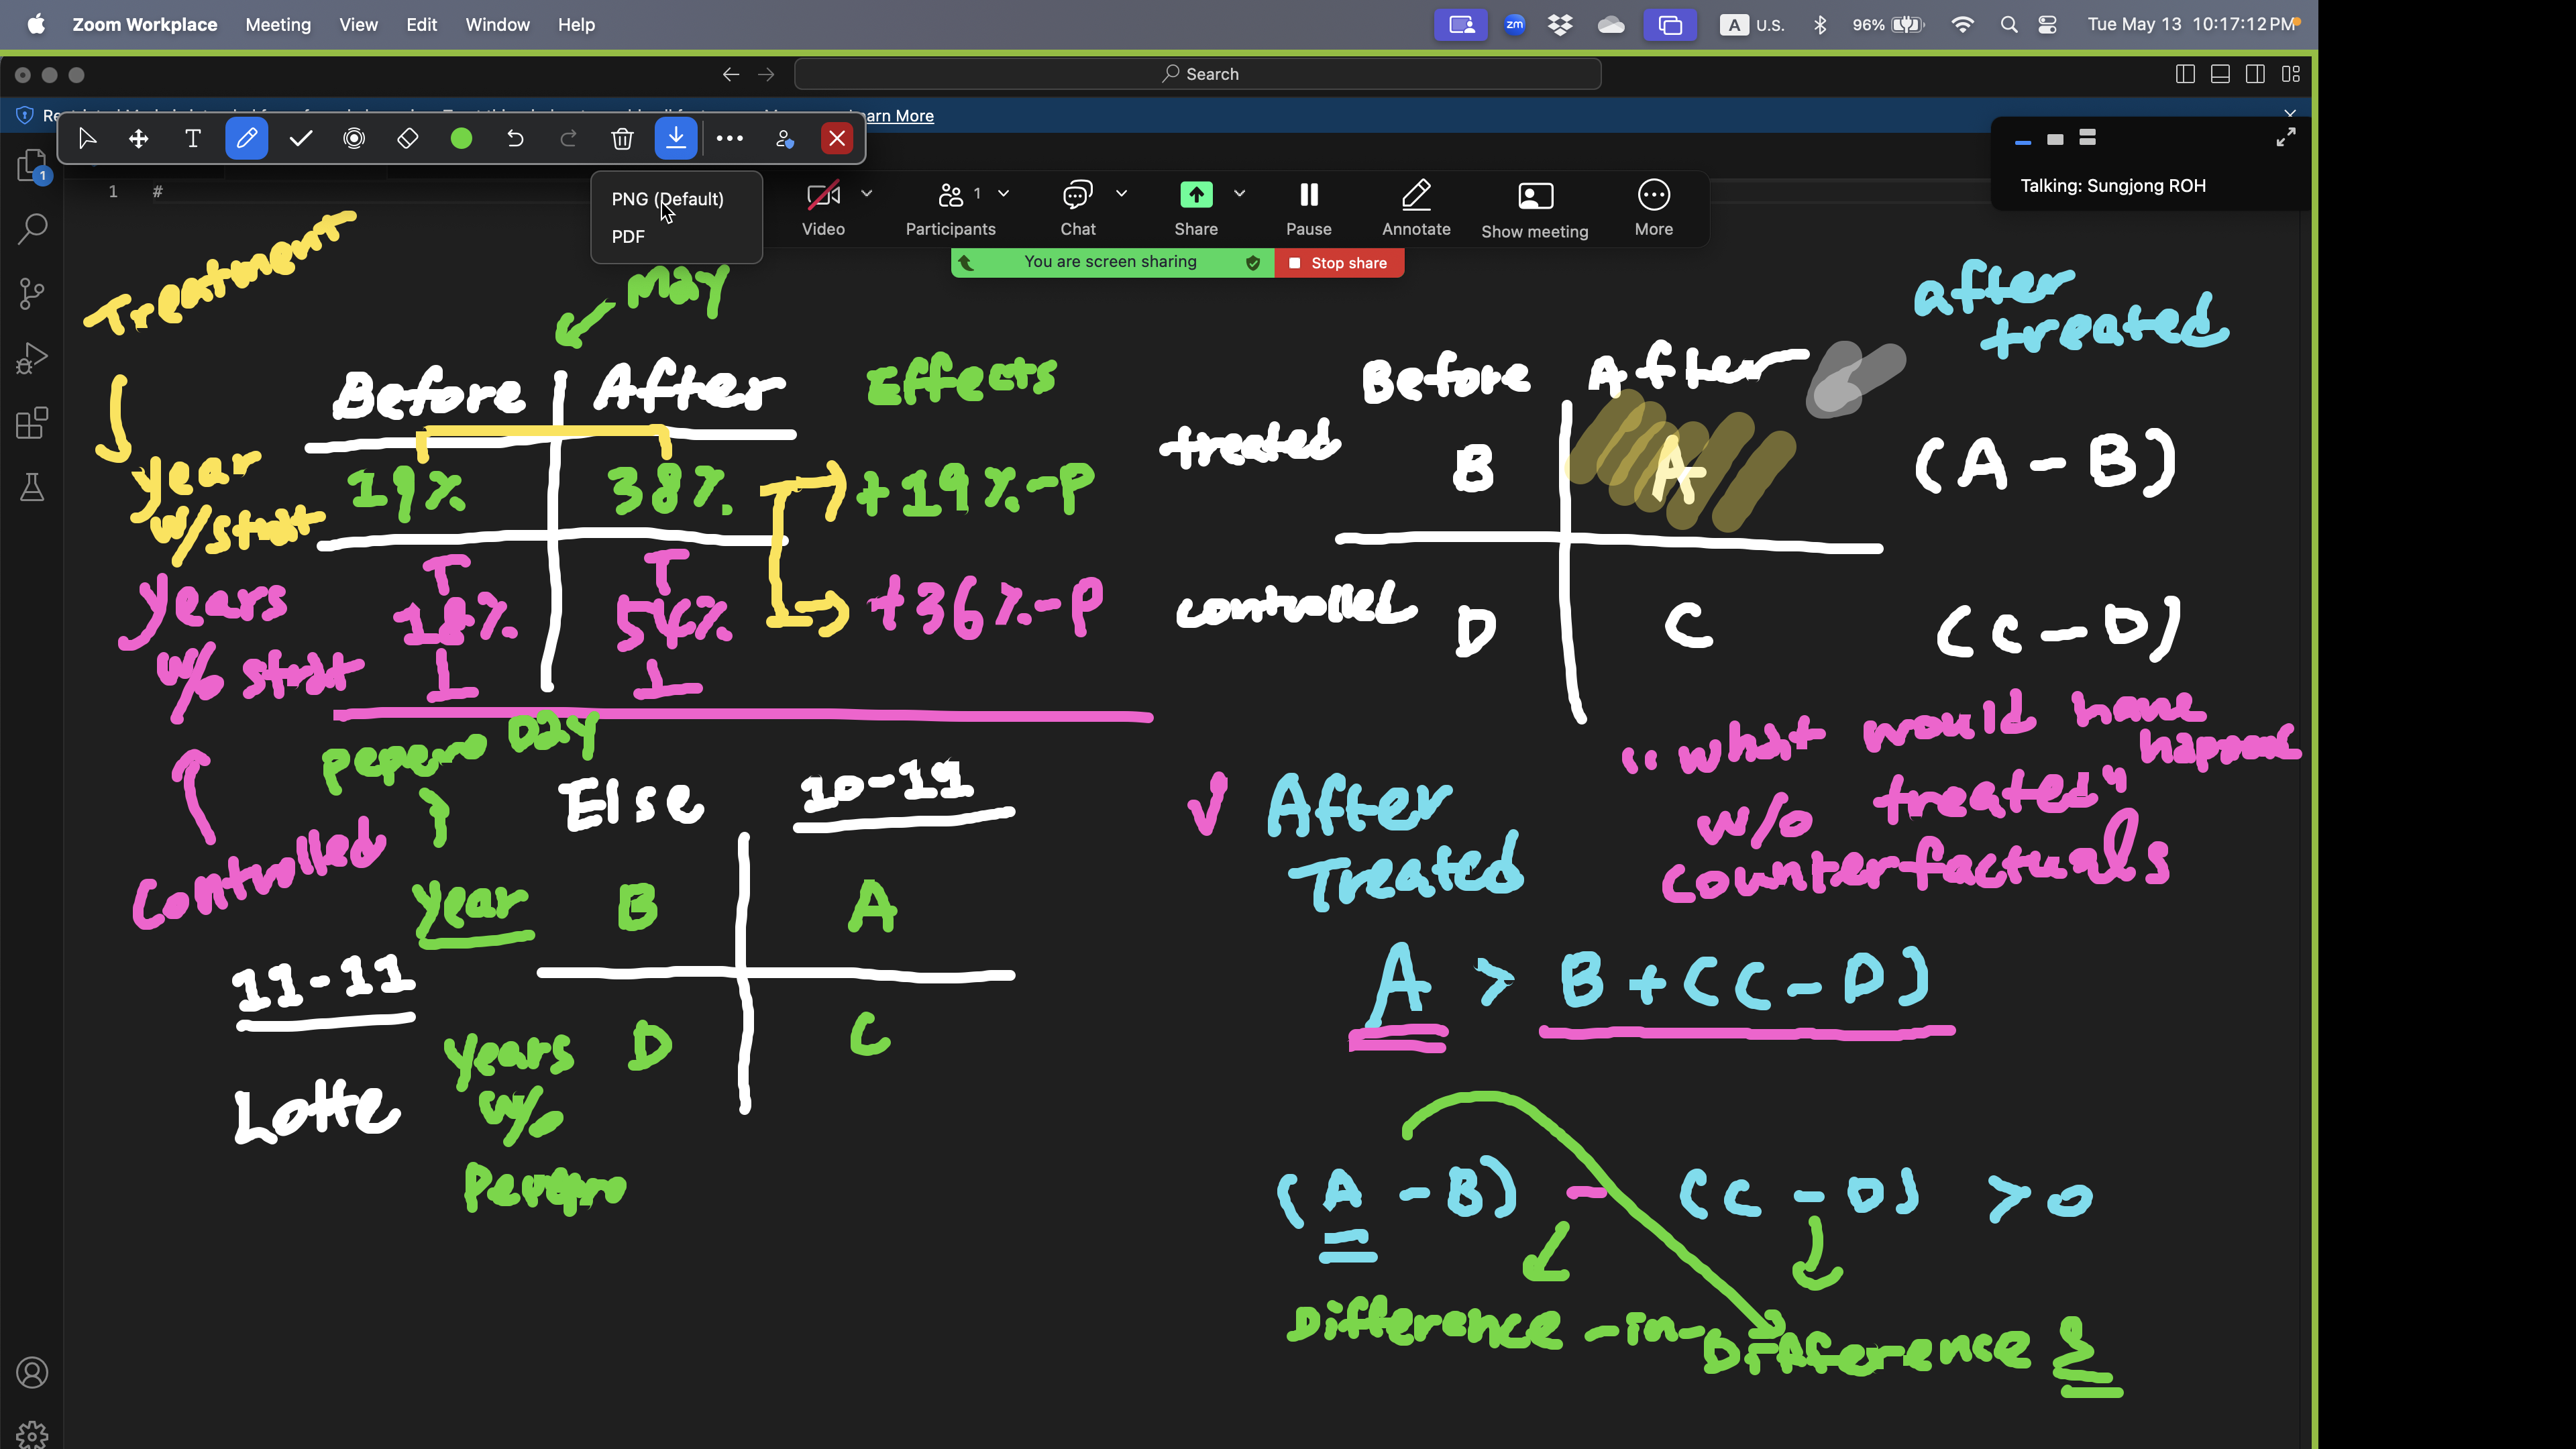 Zoom Workplace Meeting View Edit Window Help
zm A U.S. 96% Tue May 13 10:17:12 PM
Search
Re
arn More
1 #
1
PNG (Default)
PDF
Video
Participants 1
Chat
Share
Pause
Annotate
Show meeting
More
You are screen sharing
Stop share
Talking: Sungjong ROH
Treatment
May
Before After Effects
year w/strat 19% 38% +19%-P
years w/o strat 18% 54% +36%-P
Controlled
Pepero Day
Else 10-11
year B A
11-11
years w/o D C
Lotte
Pepero
after
treated
Before After
treated B A (A-B)
controlled D C (C-D)
"what would have
happened
w/o treated"
counterfactuals
√ After
Treated
A > B+(C-D)
(A-B) - (C-D) > 0
Difference-in-
Difference